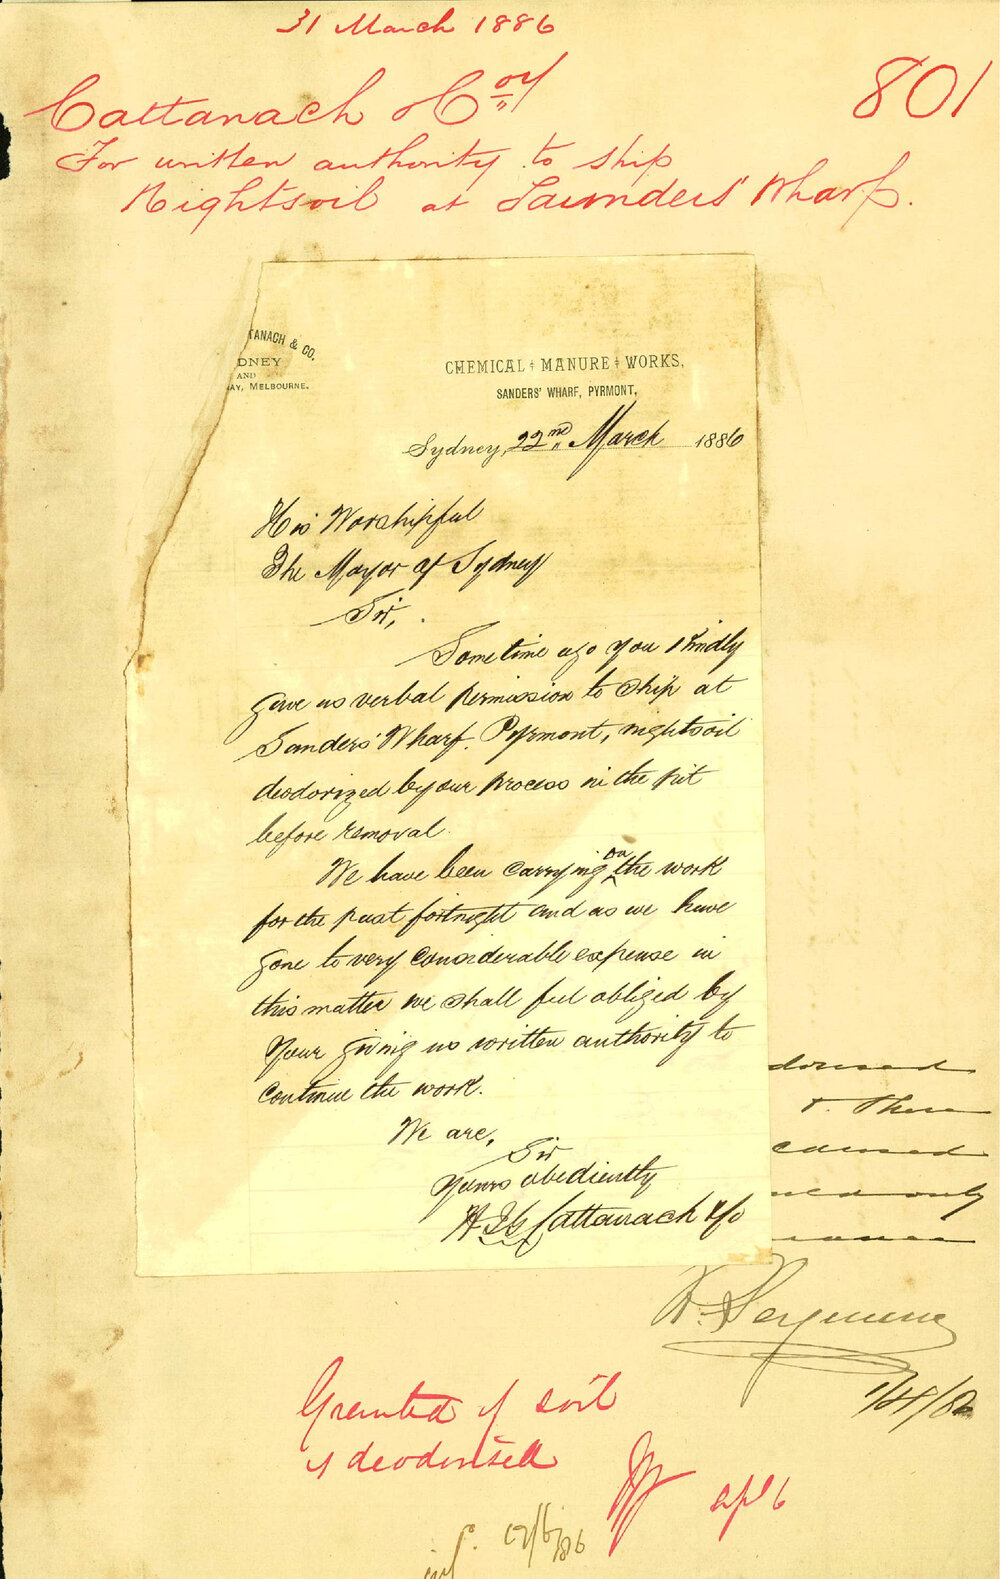 31 March 1886
801
Cattanach & Coy
For written authority to ship
Nightsoil at Saunders' Wharf.
TANACH & CO.
DNEY
AND
AY, MELBOURNE.
CHEMICAL & MANURE & WORKS,
SANDERS' WHARF, PYRMONT,
Sydney, 22nd March 1886
His Worshipful
The Mayor of Sydney
Sir,
Sometime ago you kindly
gave us verbal permission to ship at
Sanders' Wharf. Pyrmont, nightsoil
deodorized by our process in the pit
before removal.
We have been carrying on the work
for the past fortnight and as we have
gone to very considerable expense in
this matter we shall feel obliged by
your giving us written authority to
continue the work.
We are,
Sir
Yours obediently
Cattanach & Co
dorised
& there
caused
only
1/4/86
Granted if soil
is deodorised
apl 6